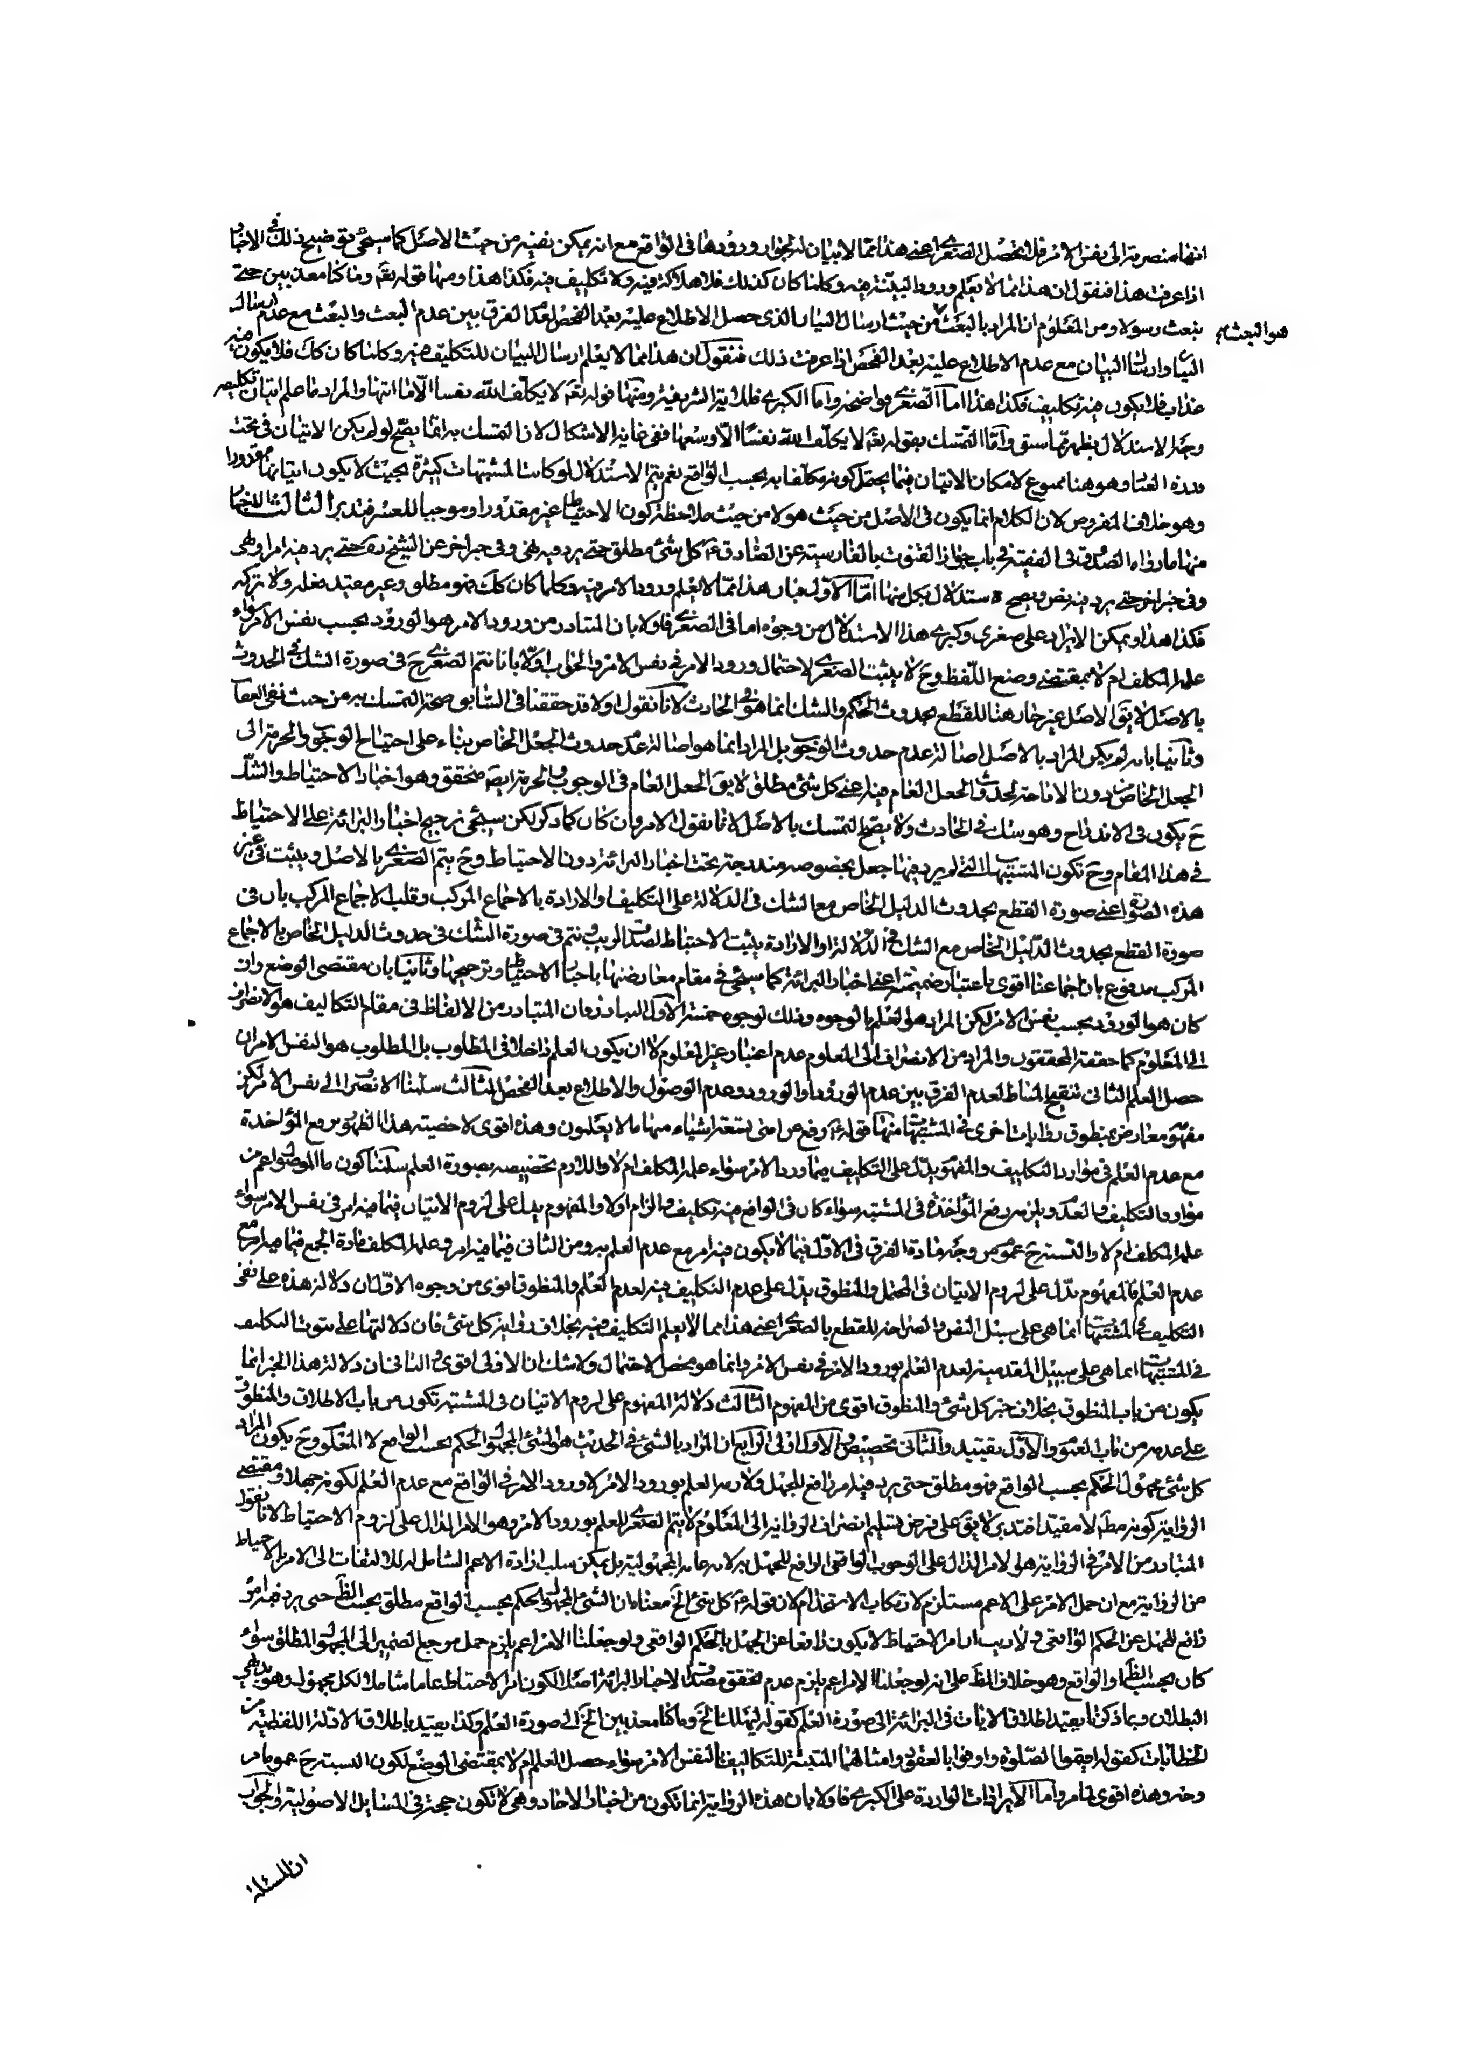 انها منصرفة الى نفس الامر فلا تحصل الصغرى اعنى هذا مما لا بيان له لجواز ورودها فى الواقع مع انه يمكن نفيه من حيث الاصل كما سيجئ توضيح ذلك فى الاخبار
اذا عرفت هذا فنقول ان هذا مما لا يعلم ورود البينة فيه وكلما كان كذلك فلا هلاكة فيه ولا تكليف فيه فكذا هذا ومنها قوله تعم وما كنا معذبين حتى
نبعث رسولا ومن المعلوم ان المراد بالبعث من حيث ارسال البيان الذى حصل الاطلاع عليه بعد الفحص لعدم الفرق بين عدم البعث والبعث مع عدم ارسال
هو البعث
البيان وارسال البيان مع عدم الاطلاع عليه بعد الفحص اذا عرفت ذلك فنقول ان هذا مما لا يعلم ارسال البيان للتكليف فيه وكلما كان كك فلا يكون فيه
عذاب فلا يكون فيه تكليف فكذا هذا اما الصغرى فواضحة واما الكبرى فللاية الشريفة ومنها قوله تعم لا يكلف الله نفسا الا ما اتيها والمراد ما علم اتيان تكليفه
وجه الاستدلال يظهر مما سبق واما التمسك بقوله تعم لا يكلف الله نفسا الا وسعها ففى غاية الاشكال لان التمسك به انما يصح لو لم يكن الاتيان فى تحت
قدرة العباد وهو هنا ممنوع لامكان الاتيان فيما يحتمل كونه مكلفا به بحسب الواقع نعم يتم الاستدلال لو كانت المشتبهات كثيرة بحيث لا يكون اتيانها مقدورا
وهو خلاف المفروض لان الكلام انما يكون فى الاصل من حيث هو لا من حيث ملاحظة كون الاحتياط غير مقدور او موجبا للعسر فتدبر الثالث الاخبار
منها ما رواه الصدوق فى الفقيه فى باب جواز القنوت بالفارسية عن الصادق ع كل شئ مطلق حتى يرد فيه نهى وفى خبر اخر عن الشيخ ره حتى يرد فيه امر او نهى
وفى خبر اخر حتى يرد فيه نص ويصح الاستدلال بكل منها اما الاول فبان هذا مما لا يعلم ورود الامر فيه وكلما كان كك فهو مطلق وغير مقيد بفعله ولا تركه
فكذا هذا ويمكن الايراد على صغرى وكبرى هذا الاستدلال من وجوه اما فى الصغرى فاولا بان المتبادر من ورود الامر هو الورود بحسب نفس الامر سواء
علمه المكلف ام لا بمقتضى وضع اللفظ وح لا يثبت الصغرى لاحتمال ورود الامر فى نفس الامر والجواب اولا بانا نتم الصغرى ح فى صورة الشك فى الحدوث
بالاصل لا يق الاصل غير جار هنا للقطع بحدوث الحكم والشك انما هو فى الحادث لانا نقول اولا قد حققنا فى السابق صحة التمسك به من حيث نفى العقاب
وثانيا بانه لم يكن المراد بالاصل اصالة عدم حدوث الوجوب بل المراد انما هو اصالة عدم حدوث الجعل الخاص بناء على احتياج الوجوب والحرمة الى
الجعل الخاص بدون الاباحة لحدوث الجعل العام فيه اعنى كل شئ مطلق لا يق الجعل العام فى الوجوب والحرمة ايضا متحقق وهو اخبار الاحتياط والشك
ح يكون فى الاندراج وهو شك فى الحادث ولا يصح التمسك بالاصل لانا نقول الامر وان كان كما ذكر لكن سيجئ ترجيح اخبار البرائة على الاحتياط
فى هذا المقام وح تكون المشتبهات التى لم يرد فيها جعل بخصوصه مندرجة تحت اخبار البرائة دون الاحتياط وح يتم الصغرى بالاصل ويثبت فى غير
هذه الصورة اعنى صورة القطع بحدوث الدليل الخاص مع الشك فى الدلالة على التكليف والارادة بالاجماع المركب وقلب الاجماع المركب بان فى
صورة القطع بحدوث الدليل الخاص مع الشك فى الدلالة او الارادة يثبت الاحتياط لصدق الريب ونتم فى صورة الشك فى حدوث الدليل الخاص بالاجماع
المركب مدفوع بان اجماعنا اقوى باعتبار ضميمته اعنى اخبار البرائة كما سيجئ فى مقام معارضتها باخبار الاحتياط وترجيحها وثانيا بان مقتضى الوضع وان
كان هو الورود بحسب نفس الامر لكن المراد هو العلم بالوجوه وذلك لوجوه خمسة الاول التبادر فان المتبادر من الالفاظ فى مقام التكاليف هو الانصراف
الى المعلوم كما حققه المحققون والمراد من الانصراف الى المعلوم عدم اعتبار غير المعلوم لا ان يكون العلم داخلا فى المطلوب بل المطلوب هو النفس الامر ان
حصل العلم الثانى تنقيح المناط لعدم الفرق بين عدم الورود او الورود وعدم الوصول والاطلاع بعد الفحص الثالث سلمنا الانصراف الى نفس الامر لكن
مفهومه معارض بمنطوق روايات اخرى فى المشتبهات منها قوله ع رفع عن امتى تسعة اشياء منها ما لا يعلمون وهذه اقوى لاخصيته هذا الظهور رفع المؤاخذة
مع عدم العلم فى موارد التكليف والمفهوم يدل على التكليف فيما ورد الامر سواء علمه المكلف ام لا واللازم تخصيصه بصورة العلم سلمنا كون ما الموصولة اعم من
موارد التكليف والعدم ويلزمه رفع المؤاخذة فى المشتبه سواء كان فى الواقع فيه تكليف والزام او لا والمفهوم يدل على لزوم الاتيان فيما فيه امر فى نفس الامر سواء
علمه المكلف ام لا والنسبة ح عموم من وجه فمادة الفرق فى الاول فيما لا يكون فيه امر مع عدم العلم به ومن الثانى فيما فيه امر وعلمه المكلف فمادة الجمع فيما فيه امر مع
عدم العلم فالمفهوم يدل على لزوم الاتيان فى المحتمل والمنطوق يدل على عدم التكليف فيه لعدم العلم والمنطوق اقوى من وجوه الاول ان دلالة هذه على نفى
التكليف فى المشتبهات انما هى على سبيل النص والصراحة للقطع بالصغرى اعنى هذا مما لا يعلم التكليف فيه بخلاف رواية كل شئ فان دلالتها على ثبوت التكليف
فى المشتبهات انما هى على سبيل المقدمية لعدم العلم بورود الامر فى نفس الامر وانما هو محض الاحتمال ولا شك ان الاولى اقوى والثانى ان دلالة هذا الخبر انما
يكون من باب المنطوق بخلاف خبر كل شئ والمنطوق اقوى من المفهوم الثالث دلالة المفهوم على لزوم الاتيان فى المشتبه تكون من باب الاطلاق والمنطوق
على عدمه من باب العموم والاول تقييد والثانى تخصيص والاول اولى الرابع ان المراد بالشئ فى الحديث هو الشئ المجهول الحكم بحسب الواقع لا المعلوم وح يكون المراد
كل شئ مجهول الحكم بحسب الواقع فهو مطلق حتى يرد فيه امر رافع للجهل ولازمه العلم بورود الامر لا ورود الامر فى الواقع مع عدم العلم لكونه جهلا ومقتضى
الرواية كونه مط لا مقيدا فتدبر لا يق على فرض تسليم انصراف الرواية الى المعلوم لا يتم الصغرى للعلم بورود الامر وهو الامر الدال على لزوم الاحتياط لانا نقول
المتبادر من الامر فى الرواية هو الامر الدال على الوجوب الواقعى الرافع للجهل به لا بعد المجهولية بل يمكن سلب ارادة الاعم الشامل له للالتفات الى الامر بالاحتياط
من الرواية مع ان حمل الامر على الاعم مستلزم لارتكاب الاستخدام لان قوله ع كل شئ الخ معناه ان الشئ المجهول الحكم بحسب الواقع مطلق بحسب الظ حتى يرد فيه امر
رافع للجهل عن الحكم الواقعى ولا ريب ان امر الاحتياط لا يكون رافعا عن الجهل بالحكم الواقعى ولو جعلنا الامر اعم يلزم حمل مرجع الضمير الى المجهول المطلق سواء
كان بحسب الظ او الواقع وهو خلاف الظ على انه لو جعلنا الامر اعم يلزم عدم تحقق مصداق لاخبار البرائة اصلا لكون امر الاحتياط عاما شاملا لكل مجهول وهو بديهى
البطلان وبما ذكرنا يقيد اطلاق الايات فى البرائة الى صورة العلم كقوله ليهلك الخ وما كنا معذبين الخ الى صورة العلم وكذا يقيد باطلاق الادلة اللفظية من
الخطابات كقوله اقيموا الصلوة واوفوا بالعقود وامثالهما المثبتة للتكاليف النفس الامر سواء حصل العلم ام لا بمقتضى الوضع لكون النسبة ح عموما من
وجه وهذه اقوى لما مر واما الايرادات الواردة على الكبرى فاولا بان هذه الرواية انما تكون من اخبار الاحاد وهى لا تكون حجة فى المسايل الاصولية والجواب
ان المسئلة